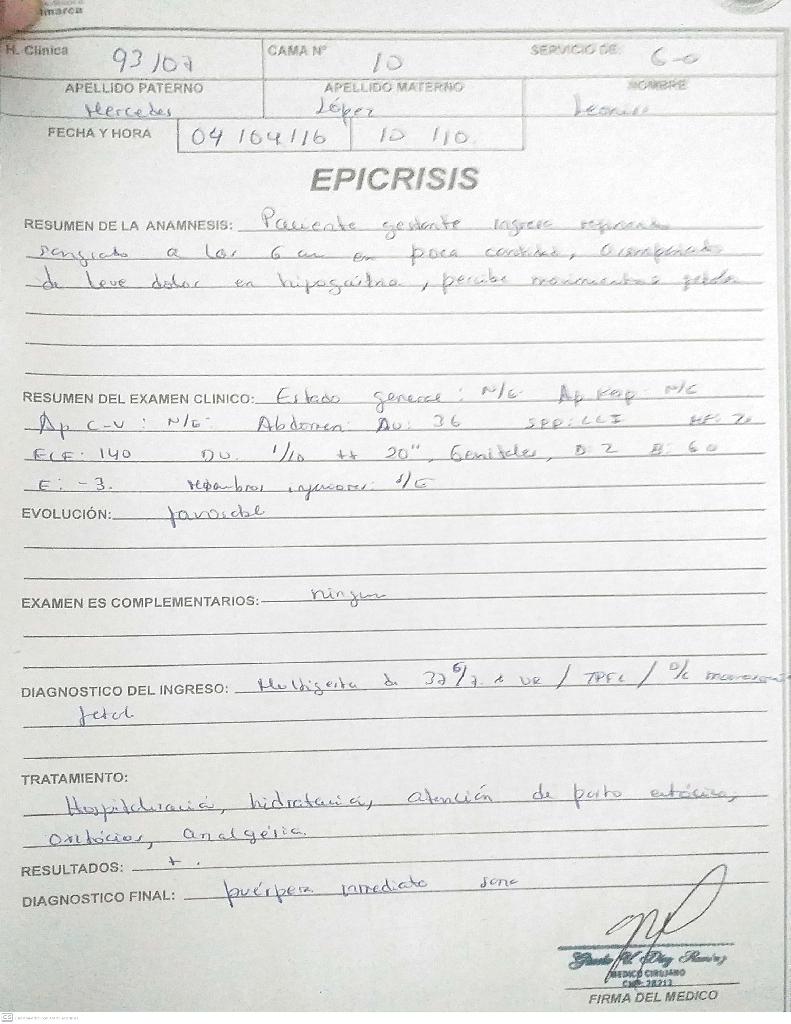 amarca
H. Clinica 93/07 CAMA Nº 10 SERVICIO DE: G-O
APELLIDO PATERNO APELLIDO MATERNO NOMBRE
Mercedes López
FECHA Y HORA 04/04/16 10 10
EPICRISIS
RESUMEN DE LA ANAMNESIS: Paciente gestante ingresa refiriendo
sangrado a las 6 am en poca cantidad, acompañado
de leve dolor en hipogastrio, percibe movimientos fetales
RESUMEN DEL EXAMEN CLINICO: Estado general: N/E. Ap Resp. N/E
Ap C-V: N/E. Abdomen: AU: 36 SPP: LCI
140 DU. 1/10 ++ 20", Genitales, D: 2 B: 60
E: -3. Miembros inferiores: S/E
EVOLUCIÓN: favorable
EXAMEN ES COMPLEMENTARIOS: ningun
DIAGNOSTICO DEL INGRESO: Multigesta de 37 6/7. x UR / TPFL / D/C
fetal
TRATAMIENTO:
Hospitalización, hidratación, atención de parto eutócico,
Oxitócicos, analgésia.
RESULTADOS: + .
DIAGNOSTICO FINAL: puérpera inmediato sana
MEDICO CIRUJANO
FIRMA DEL MEDICO